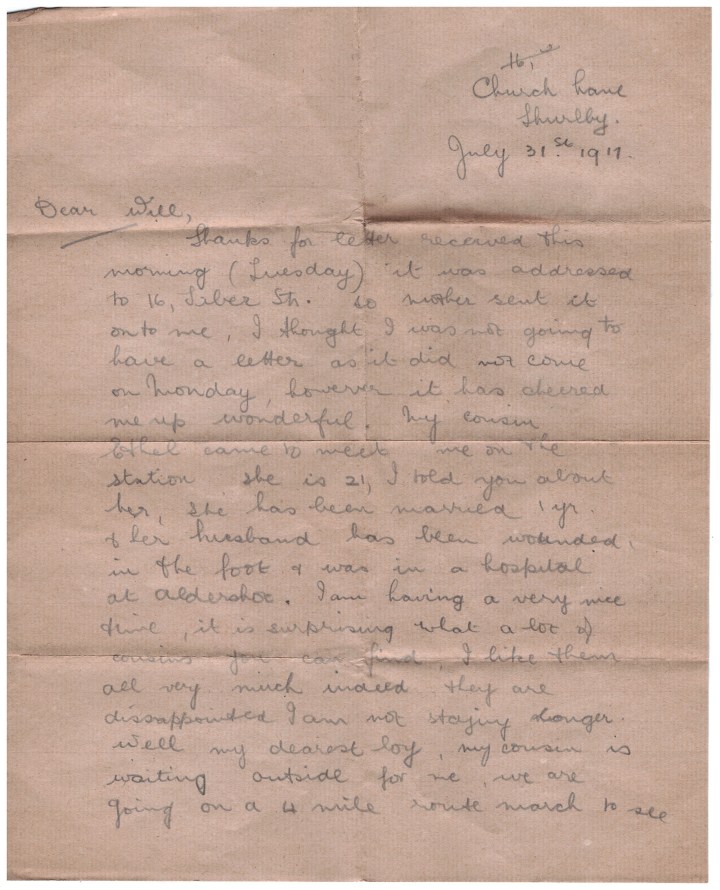 16,
Church Lane
Thurlby.
July 31st 1917.
Dear Will,
Thanks for letter received this
morning (Tuesday) it was addressed
to 16, Tiber St. so mother sent it
onto me, I thought I was not going to
have a letter as it did not come
on Monday, however it has cheered
me up wonderful. My cousin
Ethel came to meet me on the
station she is 21, I told you about
her, she has been married 1 yr.
& her husband has been wounded
in the foot & was in a hospital
at Aldershot. I am having a very nice
time, it is surprising what a lot of
cousins you can find, I like them
all very much indeed they are
dissappointed I am not staying longer.
Well my dearest boy, my cousin is
waiting outside for me, we are
going on a 4 mile route march to see